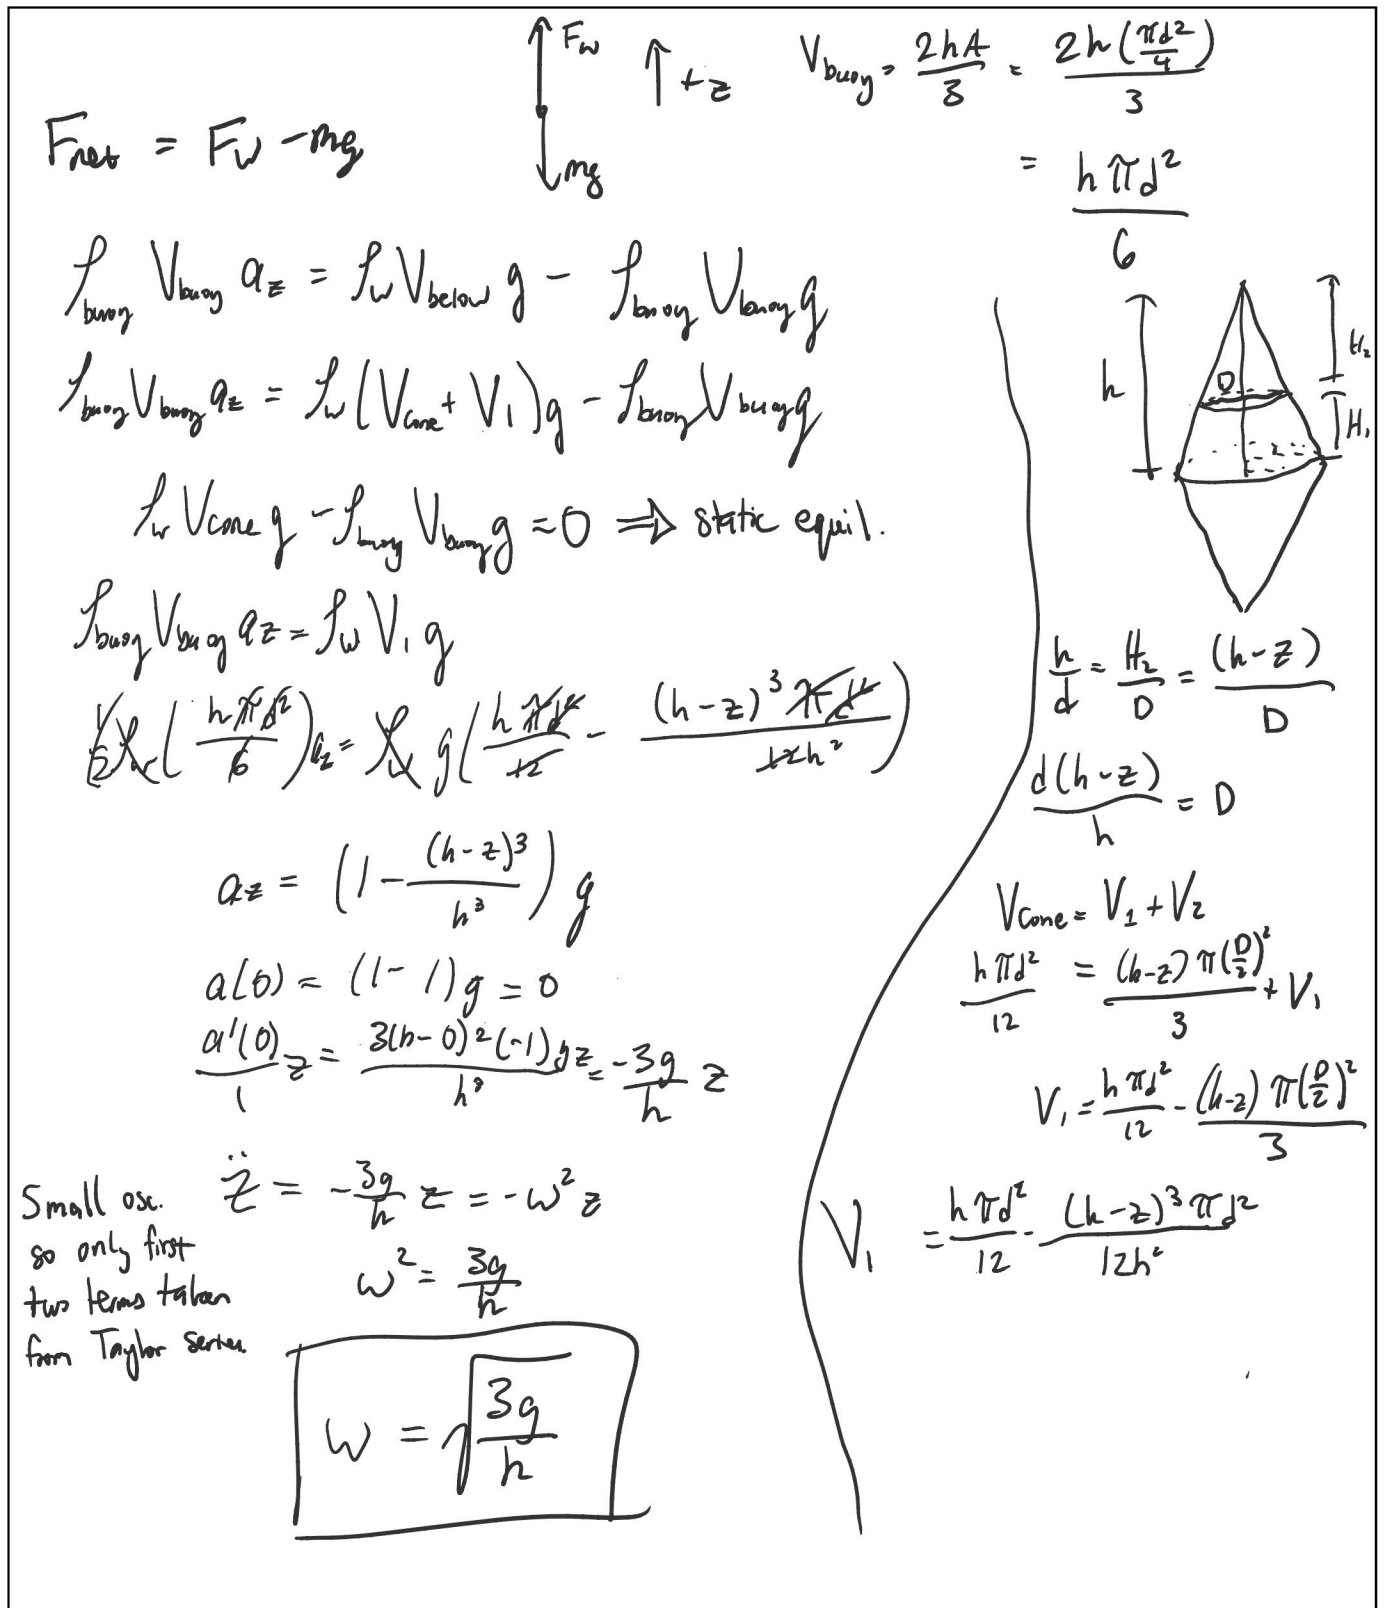 F_w
↑ +z
mg
F_net = F_w - mg
V_buoy = 2hA/3 = 2h(πd²/4)/3
= hπd²/6
ρ_buoy V_buoy a_z = ρ_w V_below g - ρ_buoy V_buoy g
ρ_buoy V_buoy a_z = ρ_w (V_cone + V_1) g - ρ_buoy V_buoy g
ρ_w V_cone g - ρ_buoy V_buoy g = 0 ⇒ static equil.
ρ_buoy V_buoy a_z = ρ_w V_1 g
1/2 ρ_w (hπd²/6) a_z = ρ_w g (hπd²/12 - (h-z)³πd²/12h²)
a_z = (1 - (h-z)³/h³) g
a(0) = (1-1)g = 0
a'(0)/1 z = 3(h-0)²(-1)gz/h³ = -3g/h z
Small osc.
so only first
two terms taken
from Taylor series.
z̈ = -3g/h z = -ω² z
ω² = 3g/h
ω = √(3g/h)
h
D
H_2
H_1
h/d = H_2/D = (h-z)/D
d(h-z)/h = D
V_cone = V_1 + V_2
hπd²/12 = (h-z)π(D/2)²/3 + V_1
V_1 = hπd²/12 - (h-z)π(D/2)²/3
V_1 = hπd²/12 - (h-z)³πd²/12h²